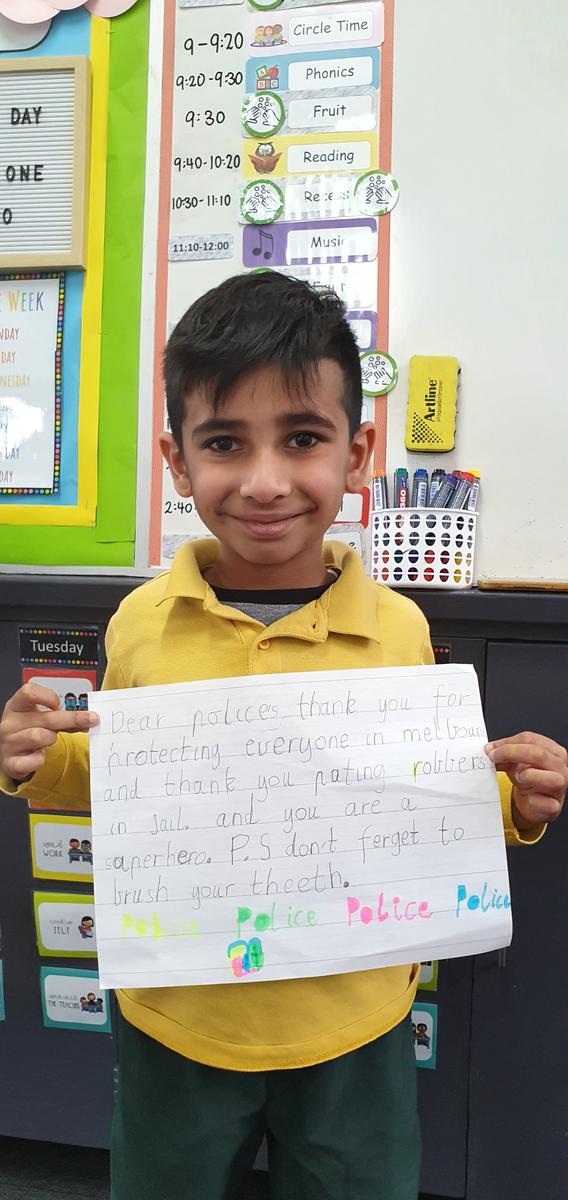 9-9:20 Circle Time
9:20-9:30 Phonics
9:30 Fruit
9:40-10:20 Reading
10:30-11:10 Recess
11:10-12:00 Music
DAY
ONE
WEEK
NESDAY
DAY
2:40-
Artline
Tuesday
WORK
SELF
THE TEACHER
Dear polices thank you for
protecting everyone in melboun
and thank you pating robbers
in jail. and you are a
saperhero. P.S don't ferget to
brush your theeth.
Police Police Police Police